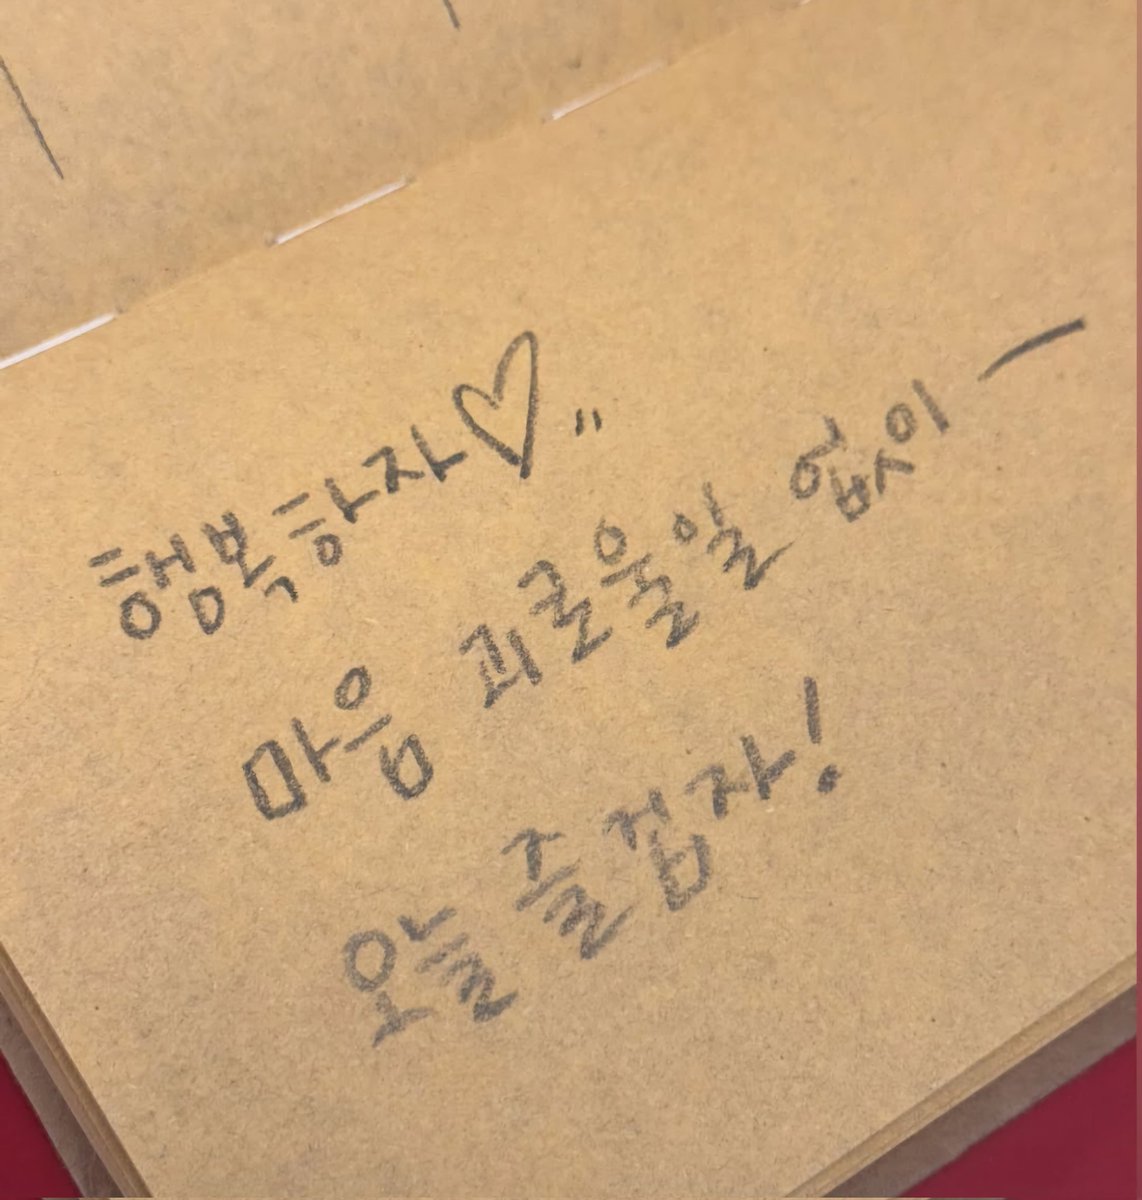 행복하자♡"
마음 괴로울일 없이ー
오늘 즐겁자!